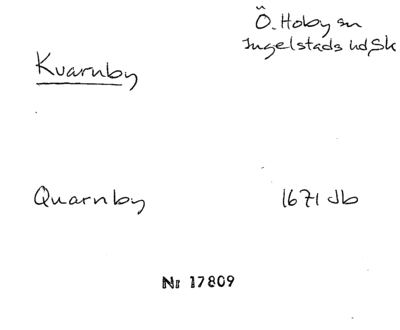 Ö. Hoby sn
Ingelstads hd, Sk
Kvarnby
Quarnby 1671 Jb
Nr 17809